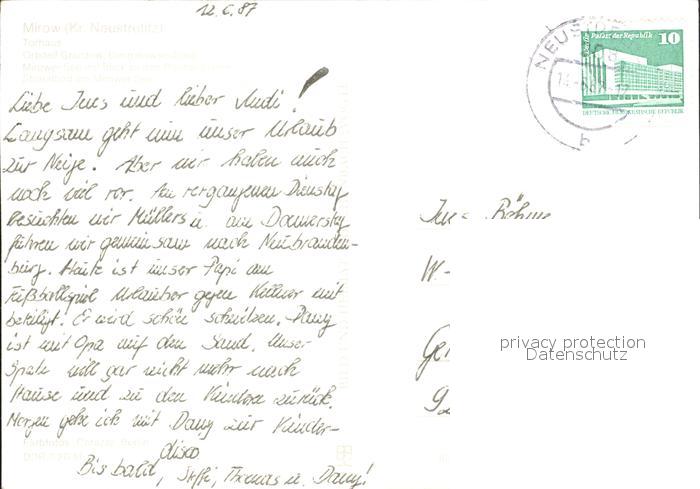 12.6.87
Mirow (Kr. Neustrelitz)
Torhaus
Liebe Ines und lieber Andi!
Langsam geht nun unser Urlaub
zur Neige. Aber wir haben auch
noch viel vor. Am vergangenen Dienstag
besuchten wir Müllers u. am Donnerstag
fuhren wir gemeinsam nach Neubranden-
burg. Heute ist unser Papi am
Fußballspiel Urlauber gegen Kellner mit
beteiligt. Er wird schön schwitzen. Dany
ist mit Opa auf den Sand. Unser
Spatz will gar nicht mehr nach
Hause und zu den Kindern zurück.
Morgen gehe ich mit Dany zur Kinder-
disco
Bis bald, Steffi, Thomas u. Dany!
NEUST
Palast der Republik 10
DEUTSCHE DEMOKRATISCHE REPUBLIK
b
Röhme
W-
privacy protection
Datenschutz